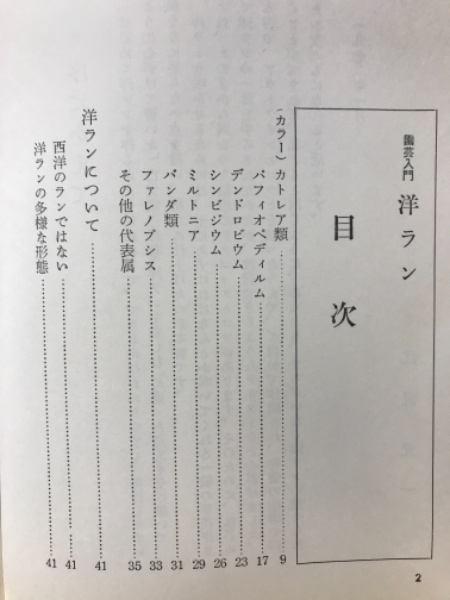 園芸入門 洋ラン
目次
(カラー) カトレア類 9
パフィオペディルム 17
デンドロビウム 23
シンビジウム 26
ミルトニア 29
バンダ類 31
ファレノプシス 33
その他の代表属 35
洋ランについて 41
西洋のランではない 41
洋ランの多様な形態 41
2